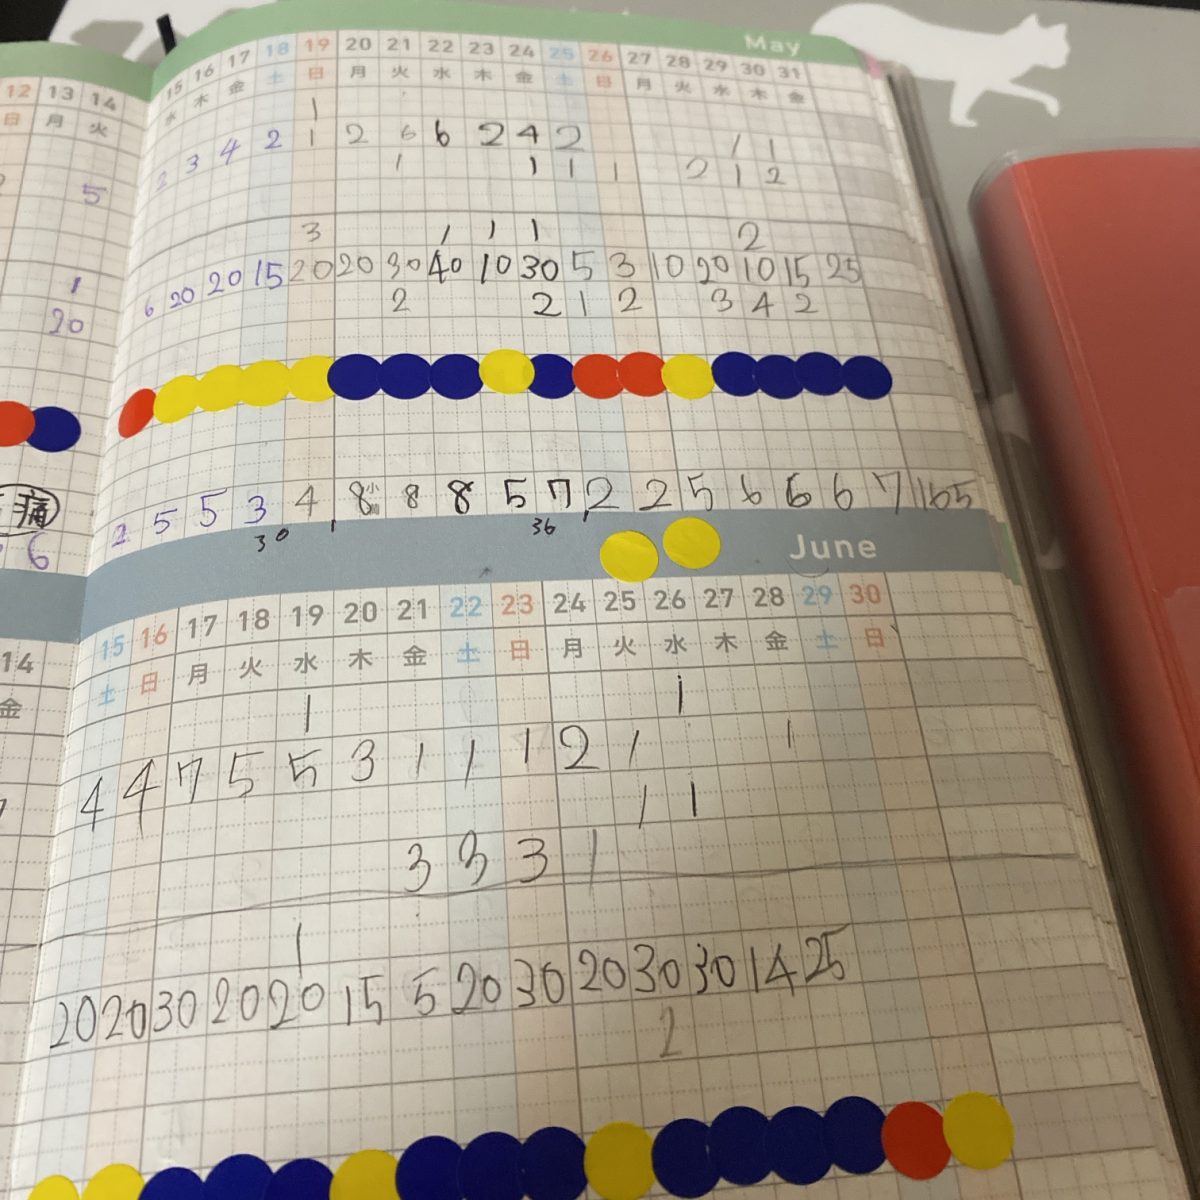 May
12 13 14 15 16 17 18 19 20 21 22 23 24 25 26 27 28 29 30 31
日 月 火 水 木 金 土 日 月 火 水 木 金 土 日 月 火 水 木 金
1
2 3 4 2 1 2 6 6 2 4 2 1 1
5 1 1 1 1 2 1 2
3 1 1 1 2
1 6 20 20 15 20 20 30 40 10 30 5 3 10 20 10 15 25
20 2 2 1 2 3 4 2
痛
2 5 5 3 4 8 8 8 5 7 2 2 5 6 6 6 7 165
6 30 36
June
14 15 16 17 18 19 20 21 22 23 24 25 26 27 28 29 30
金 土 日 月 火 水 木 金 土 日 月 火 水 木 金 土 日
1 1
4 4 7 5 5 3 1 1 1 2 1 1
1 1
3 3 3 1
1
20 20 30 20 20 15 5 20 30 20 30 30 14 25
2